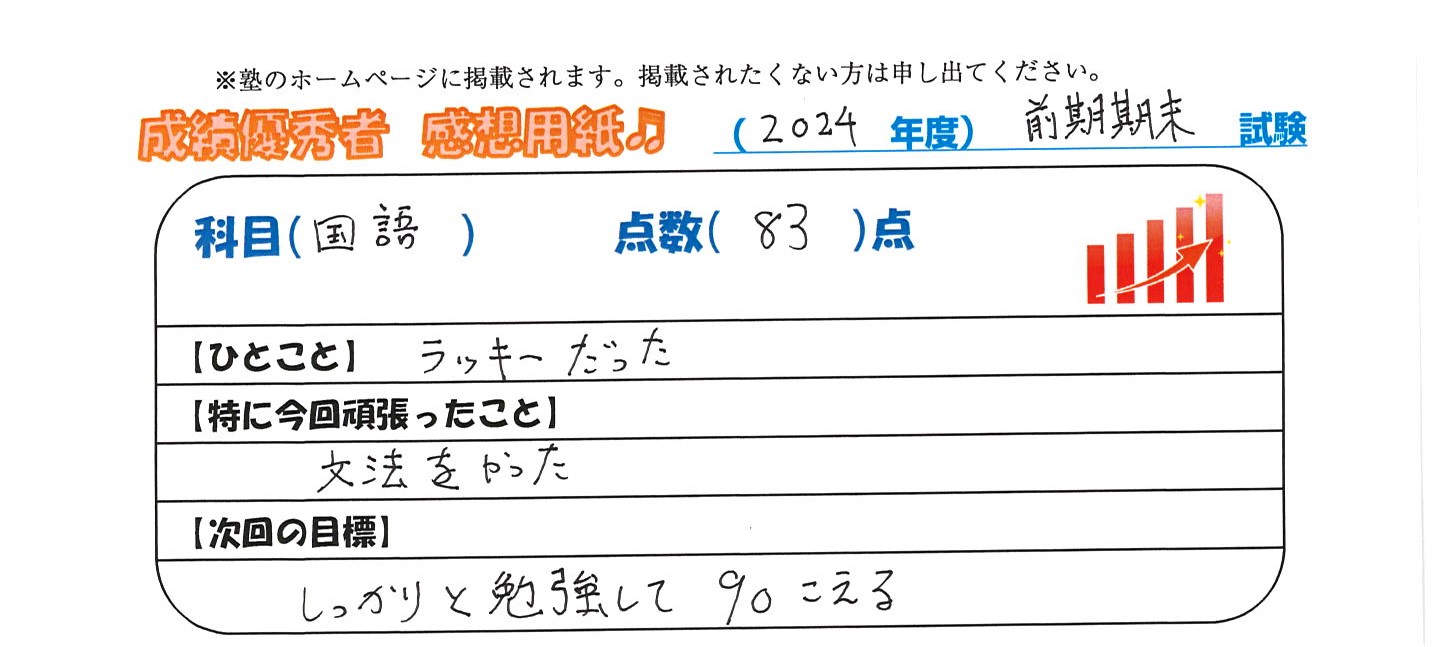 ※塾のホームページに掲載されます。掲載されたくない方は申し出てください。
成績優秀者 感想用紙♫ (2024 年度) 前期期末 試験
科目(国語) 点数(83)点
【ひとこと】 ラッキーだった
【特に今回頑張ったこと】
文法をやった
【次回の目標】
しっかりと勉強して 90こえる